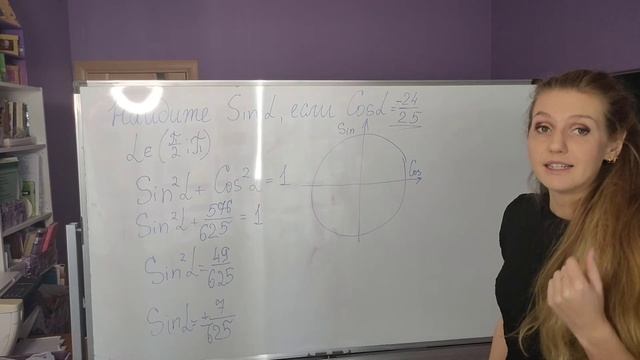 Найдите Sin α, если Cos α = -24/25
α ∈ (π/2 ; π)
Sin²α + Cos²α = 1
Sin²α + 576/625 = 1
Sin²α = 49/625
Sin α = ± 7/625
Sin
Cos